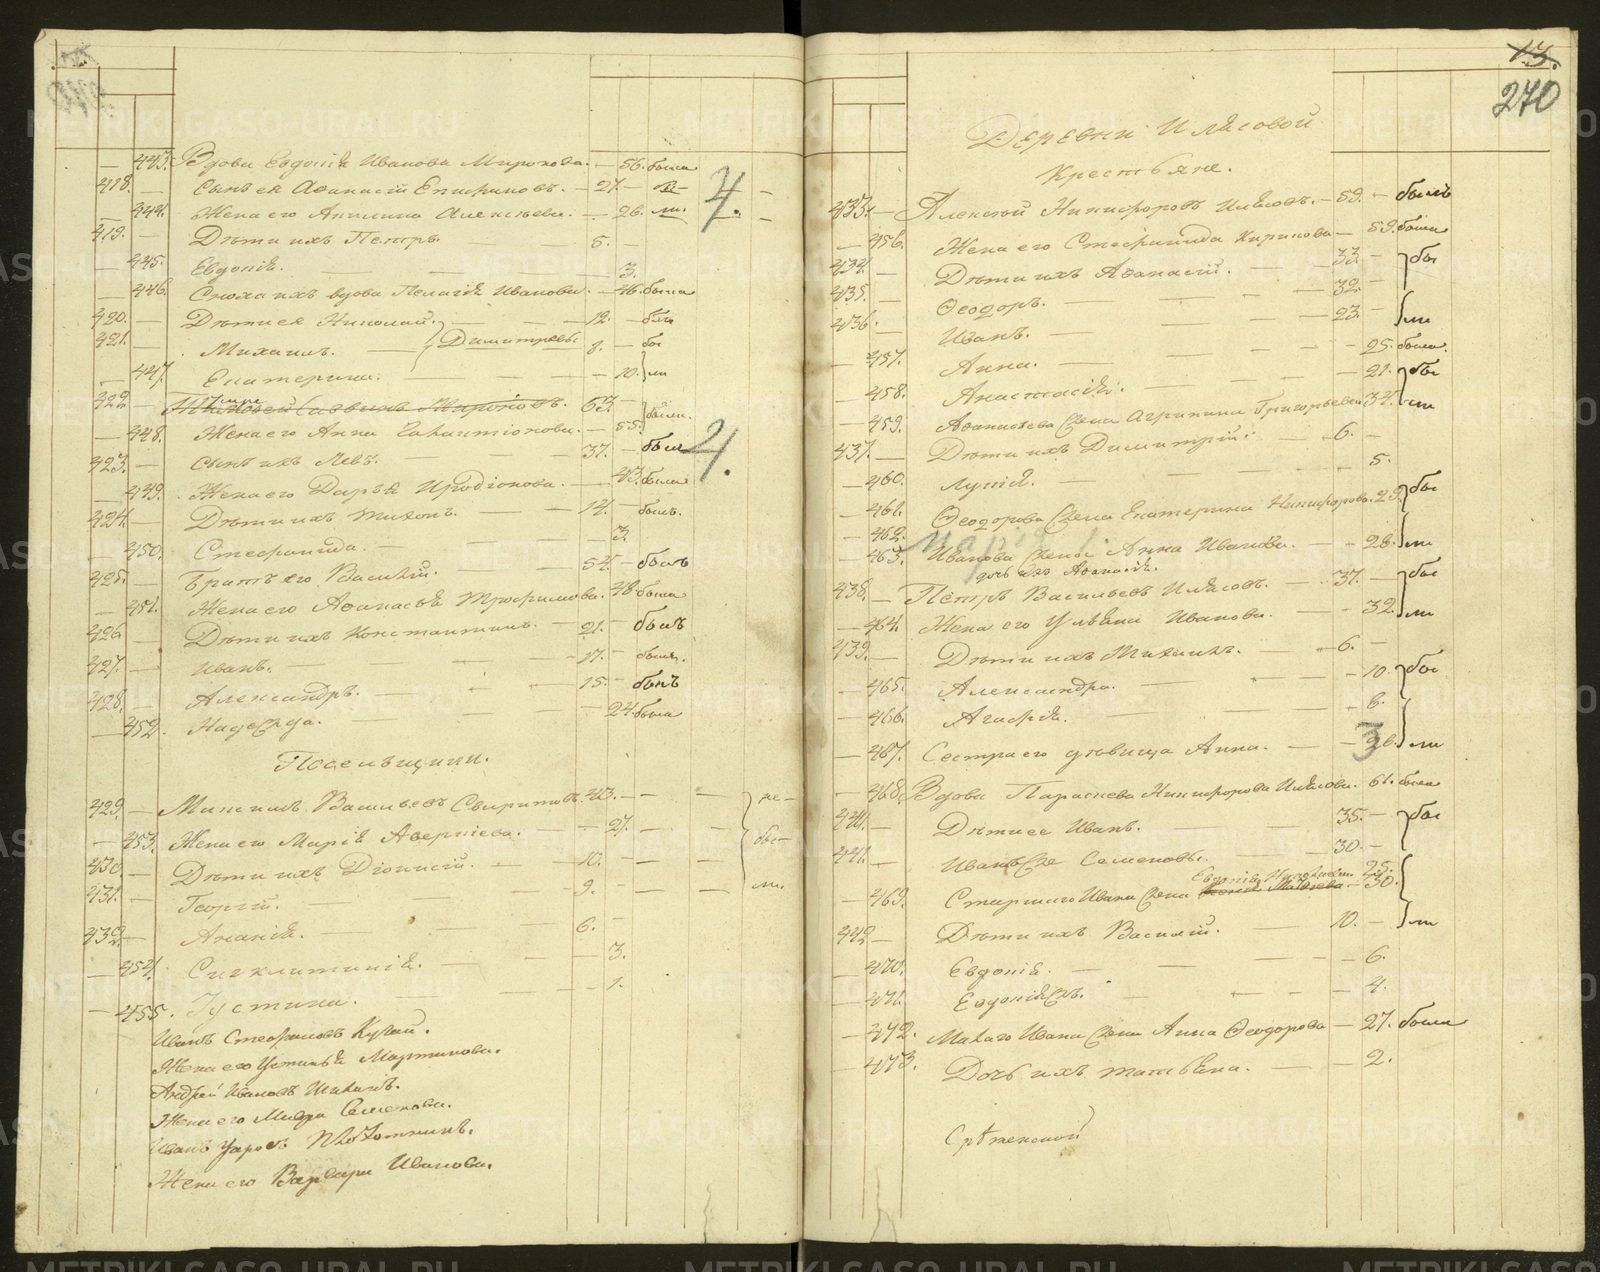 443. Вдова Евдокія Иванова Миронова. — 56. была
418. — Сынъ ея Аѳанасій Епифановъ. — 27. — бы-
444. Жена его Акилина Алексѣева. — 26. ли.
4.
419. — Дѣти ихъ Петръ. 5. —
445. Евдокія. 3.
446. Сноха ихъ вдова Пелагія Иванова. — 46. была
420. — Дѣти ея Николай. 12. —
421. — Михаилъ. Димитріевы 8. — бы
447. Екатерина. — 10. ли
422. — Савинъ Мироновъ. 63.
448. Жена его Анна — 55. были.
423. — Сынъ ихъ Левъ. 37. — былъ
4.
449. Жена его Дарья Иродіонова. — 43. была
424. — Дѣти ихъ Тихонъ. 14. — былъ.
450. Стефанида. — 3.
425. — Братъ его Василій. 54. — былъ
451. Жена его Аѳанасья Трофимова. 48. была
426. — Дѣти ихъ Константинъ. — 21. — былъ
427. — Иванъ. — 17. — былъ.
428. — Александръ. 15. — былъ
452. Надежда. — 24. была
Посельщики.
429. — Максимъ Васильевъ 43. — — не-
453. Жена его Марія Аверкіева. — 27. — — бы-
430. — Дѣти ихъ Діонисій. 10. — —
431. — Георгій. 9. — — — ли.
432. — Ананія. 6. —
454. Сигклитикія. 3.
455. Іустина. — 1.
Иванъ Стефановъ
Жена его Устинья Мартинова.
Андрей Ивановъ
Жена его Мавра Семенова.
Иванъ Плотниковъ.
Жена его Варвара Иванова.
13.
270
Деревни Илясовой
Крестьяне.
433. — Алексѣй Никифоровъ Илясовъ. — 59. — былъ
456. Жена его Стефанида Кирикова — 59. была
434. — Дѣти ихъ Аѳанасій. — 33. — бы
435. — Ѳеодоръ. — 32. —
436. — Иванъ. — 23. — ли
457. Анна. — 25. была.
458. Анастасія. — 21. бы
459. Аѳанасьева жена Агрипина Григорьева 34. ли
437. — Дѣти ихъ Димитрій. — 6. —
460. Лукія. — 5.
461. Ѳеодорова жена Екатерина Никифорова. 29. бы
462.
463. Иванова жена Анна Иванова. — 28. ли
дочь ихъ Аѳанасія.
438. — Петръ Васильевъ Илясовъ. — 37. — бы
464. Жена его Ульяна Иванова. — 32. ли
439. — Дѣти ихъ Михаилъ. — 6. —
465. Александра. — 10. бы
466. Агафія. — 6.
3
467. Сестра его дѣвица Анна. — 26. ли
468. Вдова Параскева Никифорова Илясова. 61. была
440. — Дѣти ее Иванъ. 35. — бы
441. — Иванъ же Семеновы. 30. —
Евдокія 25.
469. Старшаго Ивана жена — 30.
442. — Дѣти ихъ Василій. — 10. — ли
470. Евдокія. — 6.
471. Евдокія жъ. — 4.
472. Малаго Ивана жена Анна Ѳеодорова — 27. была
473. Дочь ихъ Татьяна. — 2.
Срѣтенской